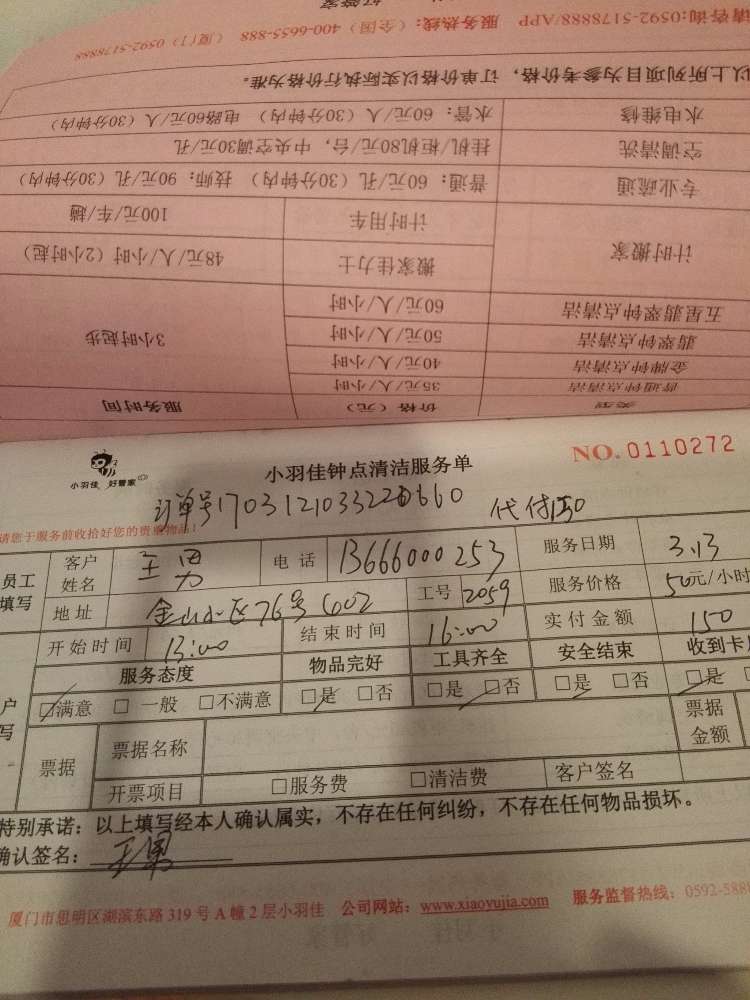 请咨询:0592-5178888/APP 服务热线:(全国)400-6655-888 (厦门)0592-5178888
以上所列项目为参考价格,订单价格以实际执行价格为准。
水电维修 水管:60元/人(30分钟内) 电路60元/人(30分钟内)
空调清洗 挂机/柜机80元/台,中央空调30元/孔
专业疏通 普通:60元/孔(30分钟内) 技师:90元/孔(30分钟内)
计时搬家 计时用车 100元/车/趟
搬家佳力士 48元/人/小时(2小时起)
五星翡翠钟点清洁 60元/人/小时 3小时起步
翡翠钟点清洁 50元/人/小时
金牌钟点清洁 40元/人/小时
普通钟点清洁 35元/人/小时
类型 价格(元) 服务时间
小羽佳 好管家
小羽佳钟点清洁服务单
NO. 0110272
订单号170312103322
代付150
请您于服务前收拾好您的贵重物品!
员工填写 客户姓名 王男 电话 13666000253 服务日期 3.13
地址 金山小区76号602 工号 2059 服务价格 50元/小时
开始时间 13:00 结束时间 16:00 实付金额 150
服务态度 物品完好 工具齐全 安全结束 收到卡
□满意 □一般 □不满意 □是 □否 □是 □否 □是 □否 □是
票据 票据名称 票据金额
开票项目 □服务费 □清洁费 客户签名
特别承诺:以上填写经本人确认属实,不存在任何纠纷,不存在任何物品损坏。
确认签名: 王男
厦门市思明区湖滨东路319号A幢2层小羽佳 公司网站:www.xiaoyujia.com 服务监督热线:0592-5888